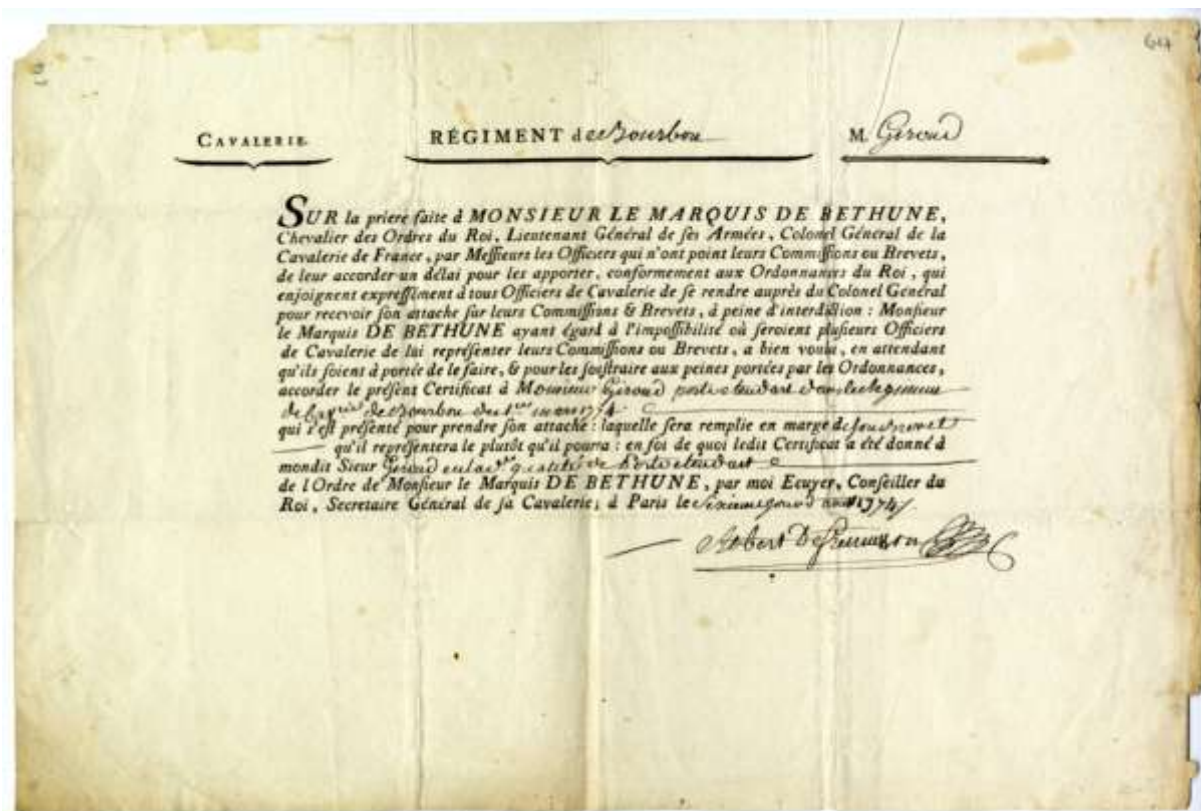 617
CAVALERIE.
RÉGIMENT de Bourbon
M. Giroud
SUR la priere faite à MONSIEUR LE MARQUIS DE BETHUNE,
Chevalier des Ordres du Roi, Lieutenant Général de ſes Armées, Colonel Général de la
Cavalerie de France, par Meſſieurs les Officiers qui n'ont point leurs Commiſſions ou Brevets,
de leur accorder un délai pour les apporter, conformement aux Ordonnances du Roi, qui
enjoignent expreſſément à tous Officiers de Cavalerie de ſe rendre auprès du Colonel Général
pour recevoir ſon attache ſur leurs Commiſſions & Brevets, à peine d'interdiction : Monſieur
le Marquis DE BETHUNE ayant égard à l'impoſſibilité où ſeroient pluſieurs Officiers
de Cavalerie de lui repréſenter leurs Commiſſions ou Brevets, a bien voulu, en attendant
qu'ils ſoient à portée de le faire, & pour les ſouſtraire aux peines portées par les Ordonnances,
accorder le préſent Certificat à Monsieur Giroud porte etendart dans le Regiment
de Bourbon du mars 1774
qui s'eſt préſenté pour prendre ſon attache : laquelle ſera remplie en marge de son brevet
qu'il repréſentera le plutôt qu'il pourra : en foi de quoi ledit Certificat a été donné à
mondit Sieur Giroud en lad. qualité de Porte etendart
de l'Ordre de Monſieur le Marquis DE BETHUNE, par moi Ecuyer, Conſeiller du
Roi, Secretaire Général de ſa Cavalerie, à Paris le Sixieme jour d'aoust 1774
Robert De